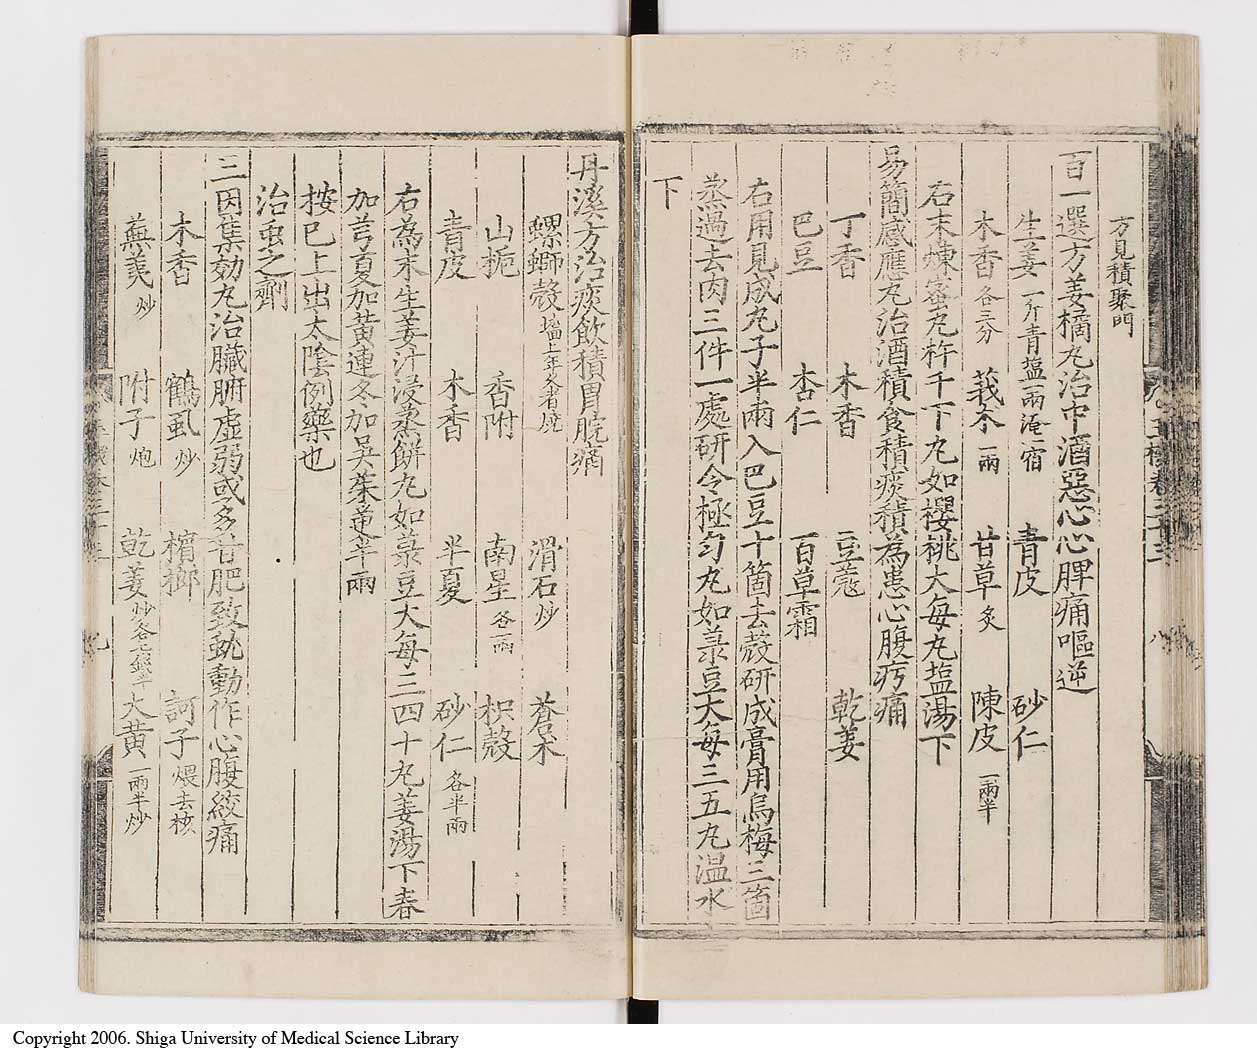 方見積聚門
百一選方姜橘丸治中酒惡心心脾痛嘔逆
生姜一斤青塩一兩淹一宿 青皮 砂仁
木香各三分 莪朮一兩 甘草炙 陳皮一兩半
右末煉蜜丸杵千下丸如櫻桃大每丸塩湯下
易簡感應丸治酒積食積痰積為患心腹疞痛
丁香 木香 豆蔲 乾姜
巴豆 杏仁 百草霜
右用見成丸子半兩入巴豆十箇去殼研成膏用烏梅三箇
蒸過去肉三件一處研令極匀丸如菉豆大每三五丸温水
下
丹溪方治痰飲積胃脘痛
螺螄殼墻上年久者燒 滑石炒 蒼朮
山梔 香附 南星各一兩 枳殼
青皮 木香 半夏 砂仁各半兩
右為末生姜汁浸蒸餅丸如菉豆大每三四十丸姜湯下春
加芎夏加黃連冬加吳茱萸半兩
按已上出太陰例藥也
治虫之劑
三因集効丸治臟腑虛弱或多食肥致蚘動作心腹絞痛
木香 鶴虱炒 檳榔 訶子煨去核
蕪荑炒 附子炮 乾姜炒各七錢半 大黃一兩半炒